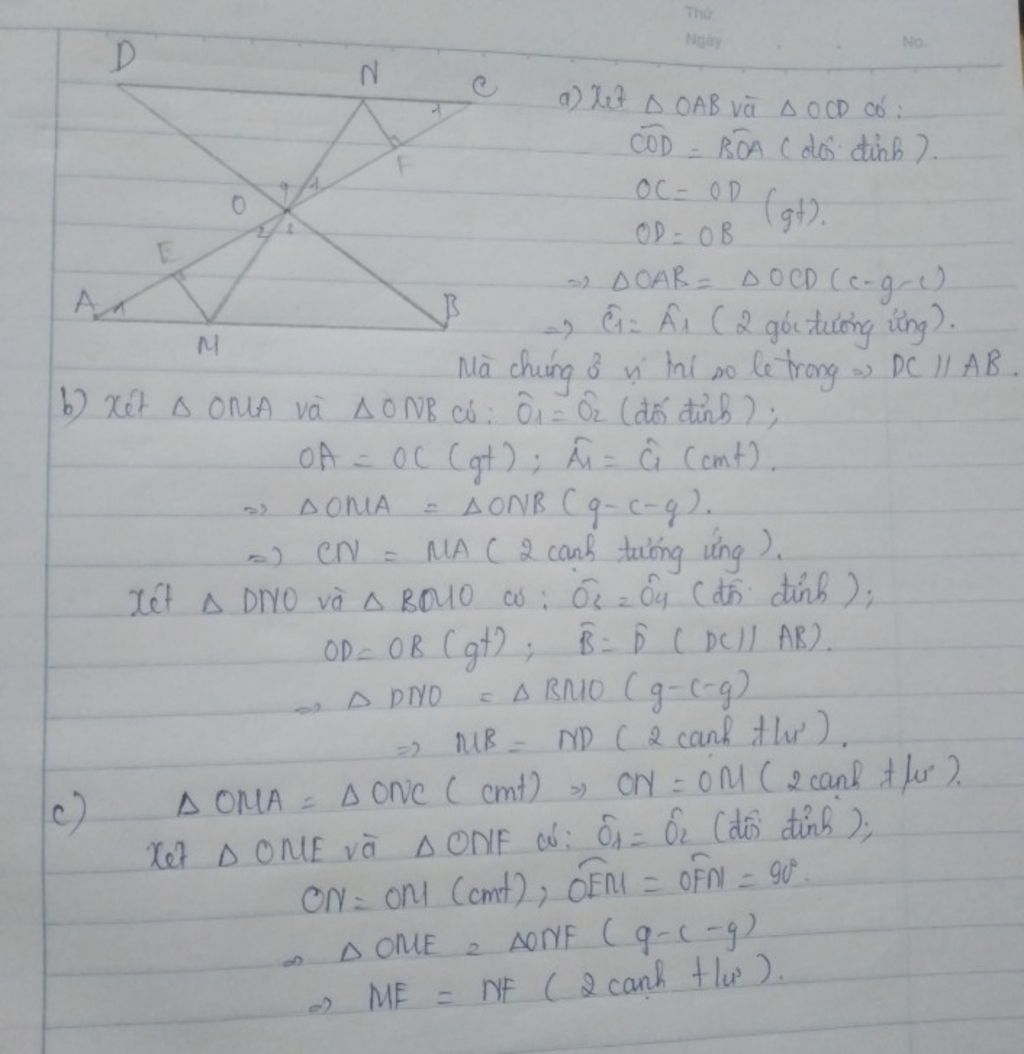 Thứ
Ngày . . No.
D N C
1
F
4 1
O
2 3
E
A 1
B
M
a) Xét △ OAB và △ OCD có:
COD = BOA (đối đỉnh).
OC = OD
(gt).
OD = OB
=> △OAB = △OCD (c-g-c)
=> Ĉ1 = Â1 (2 góc tương ứng).
Mà chúng ở vị trí so le trong => DC // AB.
b) Xét △ OMA và △ ONB có: Ô1 = Ô2 (đối đỉnh);
OA = OC (gt); Â1 = Ĉ1 (cmt).
=> △OMA = △ONB (g-c-g).
=> CN = MA (2 cạnh tương ứng).
Xét △ DNO và △ BMO có: Ô3 = Ô4 (đối đỉnh);
OD = OB (gt); B̂ = D̂ (DC // AB).
=> △ DNO = △ BMO (g-c-g)
=> MB = ND (2 cạnh tư).
c) △ OMA = △ ONC (cmt) => ON = OM (2 cạnh tư).
Xét △ OME và △ ONF có: Ô1 = Ô2 (đối đỉnh);
ON = OM (cmt); OEM = OFN = 90°.
=> △ OME = △ONF (g-c-g)
=> ME = NF (2 cạnh tư).